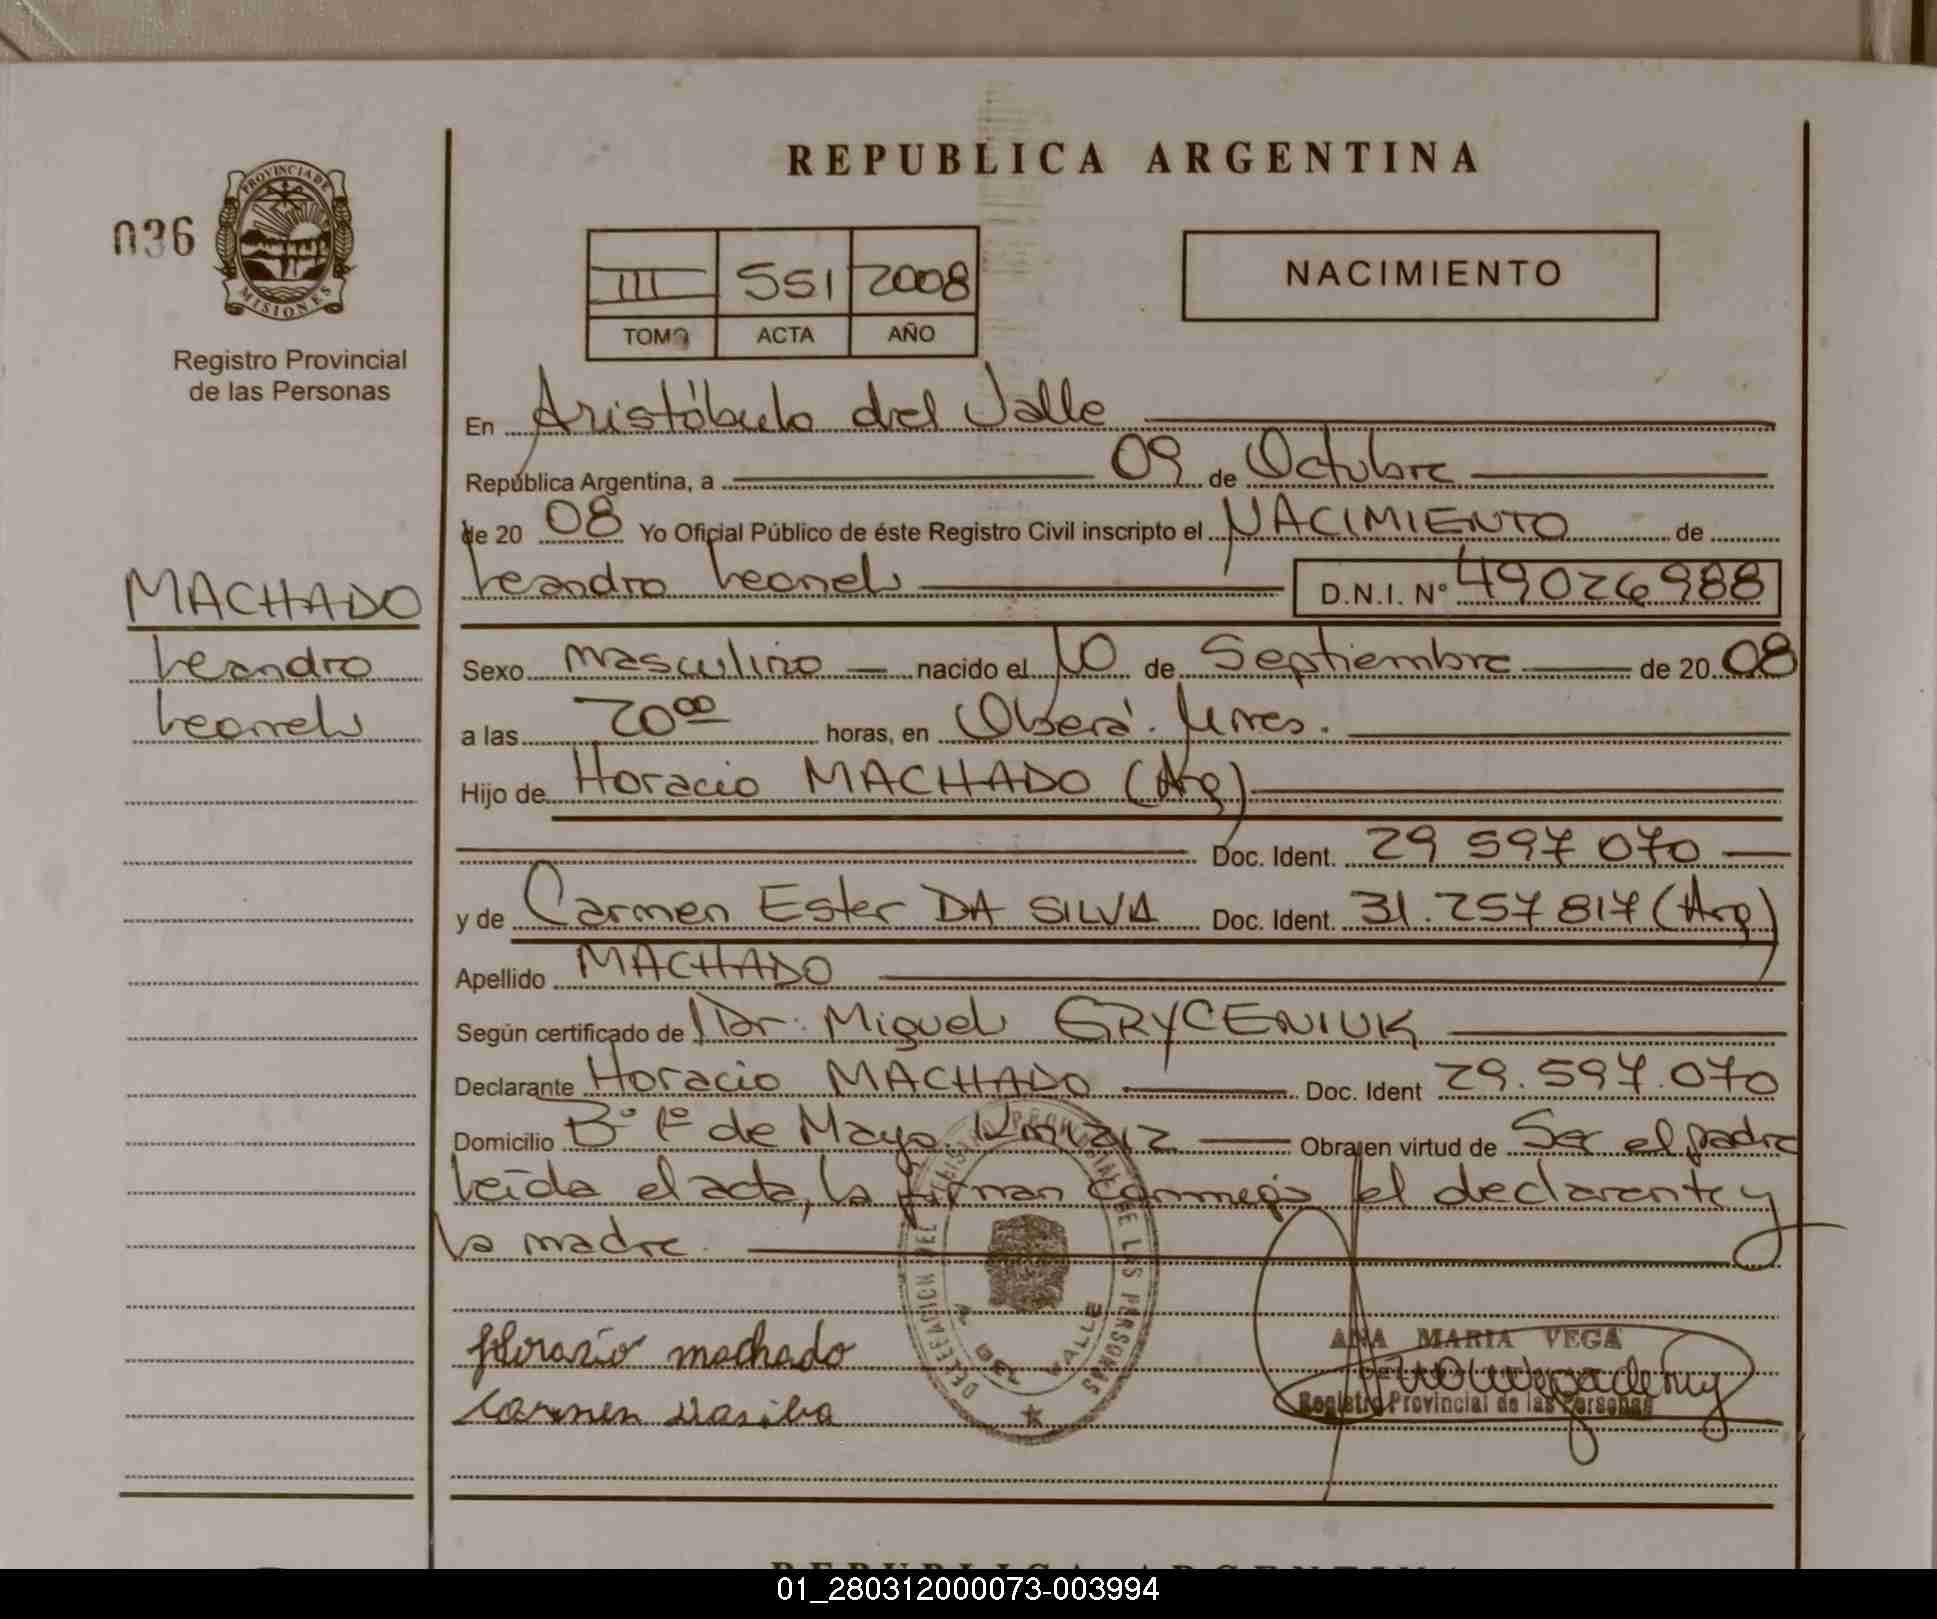 REPUBLICA ARGENTINA
036
PROVINCIA DE
MISIONES
Registro Provincial
de las Personas
III 551 2008
TOMO ACTA AÑO
NACIMIENTO
En Aristóbulo del Valle
República Argentina, a 09 de Octubre
de 20 08 Yo Oficial Público de éste Registro Civil inscripto el NACIMIENTO de
Leandro Leonel D.N.I. Nº 49026988
MACHADO
Leandro
Leonel
Sexo masculino nacido el 10 de Septiembre de 20 08
a las 20 00 horas, en Oberá. Mnes.
Hijo de Horacio MACHADO (Arg)
Doc. Ident. 29 597 070
y de Carmen Ester DA SILVA Doc. Ident. 31.257 817 (Arg)
Apellido MACHADO
Según certificado de Dr. Miguel GRYCENIUK
Declarante Horacio MACHADO Doc. Ident 29.597.070
Domicilio Bº 1º de Mayo. Km 1212 Obra en virtud de Ser el padre
Leída el acta, la firman conmigo el declarante y
la madre.
DELEGACION DEL REGISTRO PROVINCIAL DE LAS PERSONAS
VALLE
Horasio machado
Carmen Dasilva
ANA MARIA VEGA
Registro Provincial de las Personas
REPUBLICA ARGENTINA
01_280312000073-003994